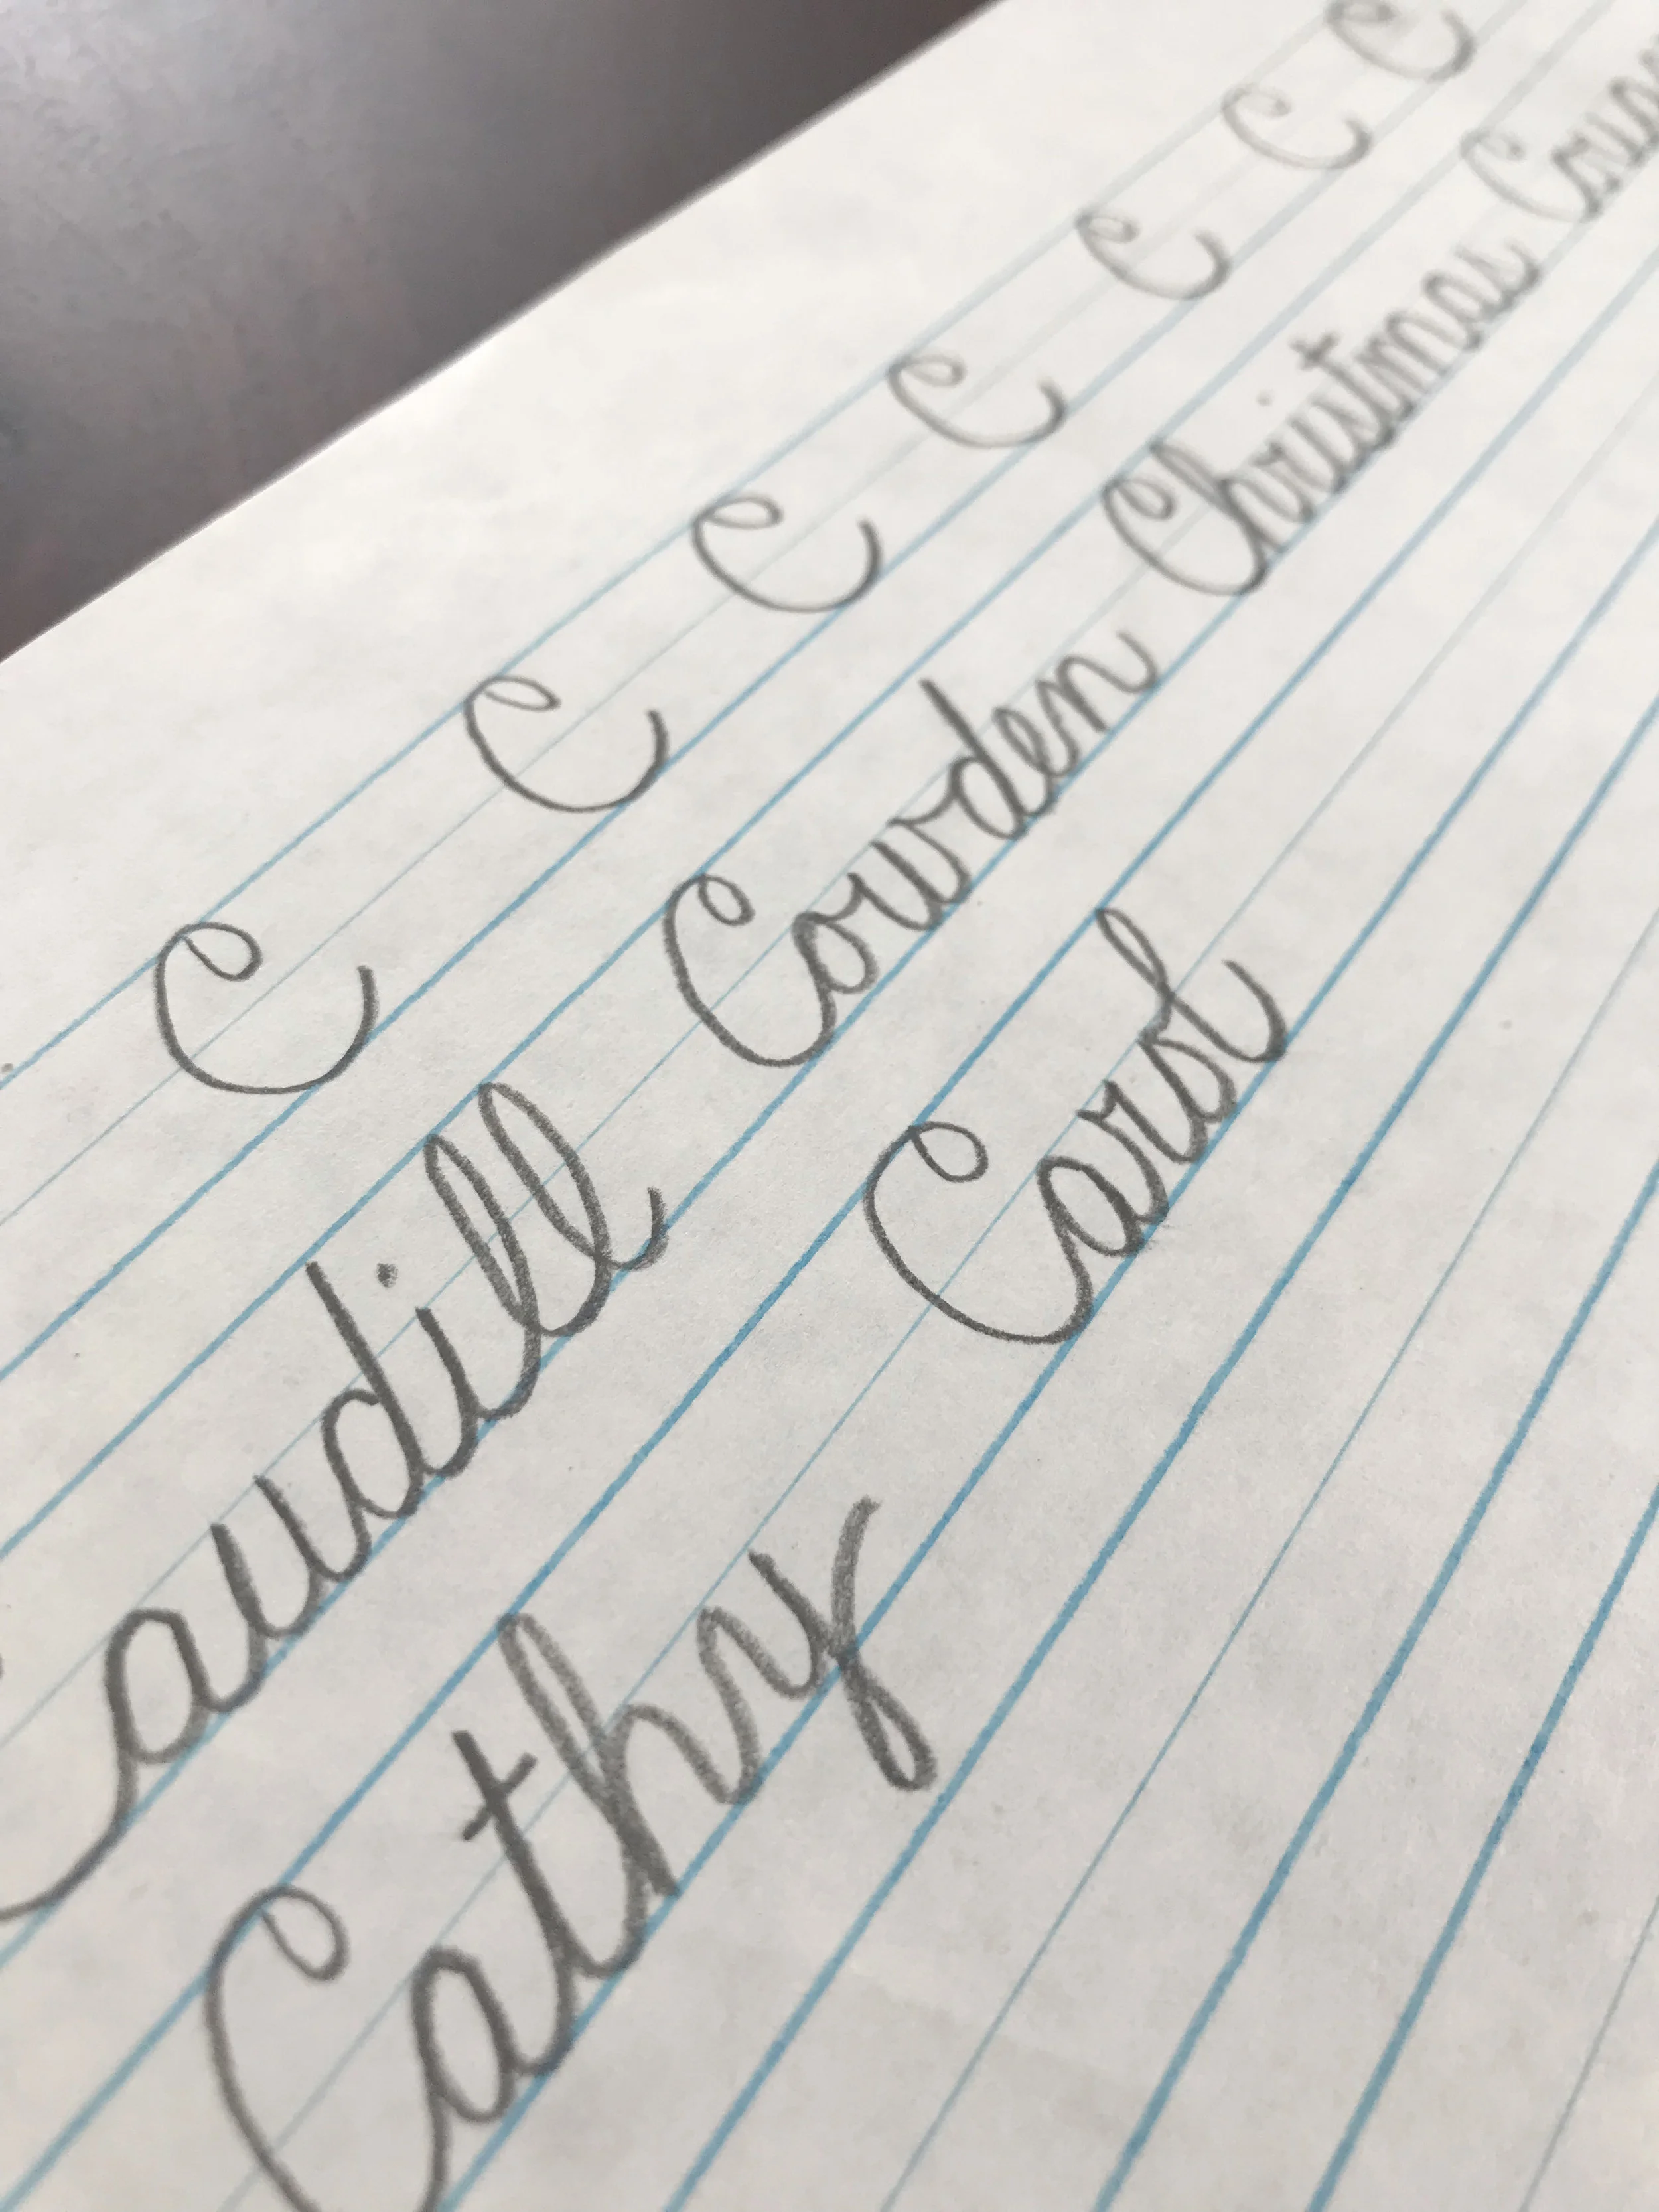 C C C C C C C
Caudill Cowden Christmas
Cathy Carol